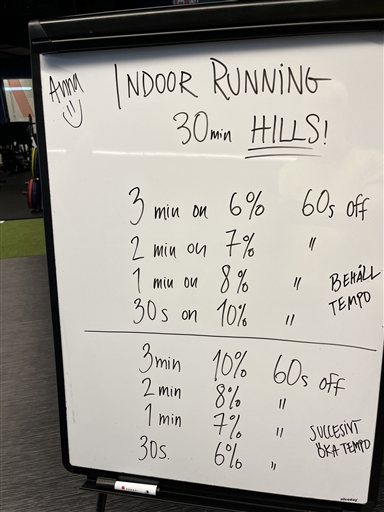 Anna
INDOOR RUNNING
30min HILLS!
3 min on 6% 60s off
2 min on 7% "
1 min on 8% " BEHÅLL
30s on 10% " TEMPO
3min 10% 60s off
2min 8% "
1min 7% " SUCCESIVT
30s. 6% " ÖKA TEMPO